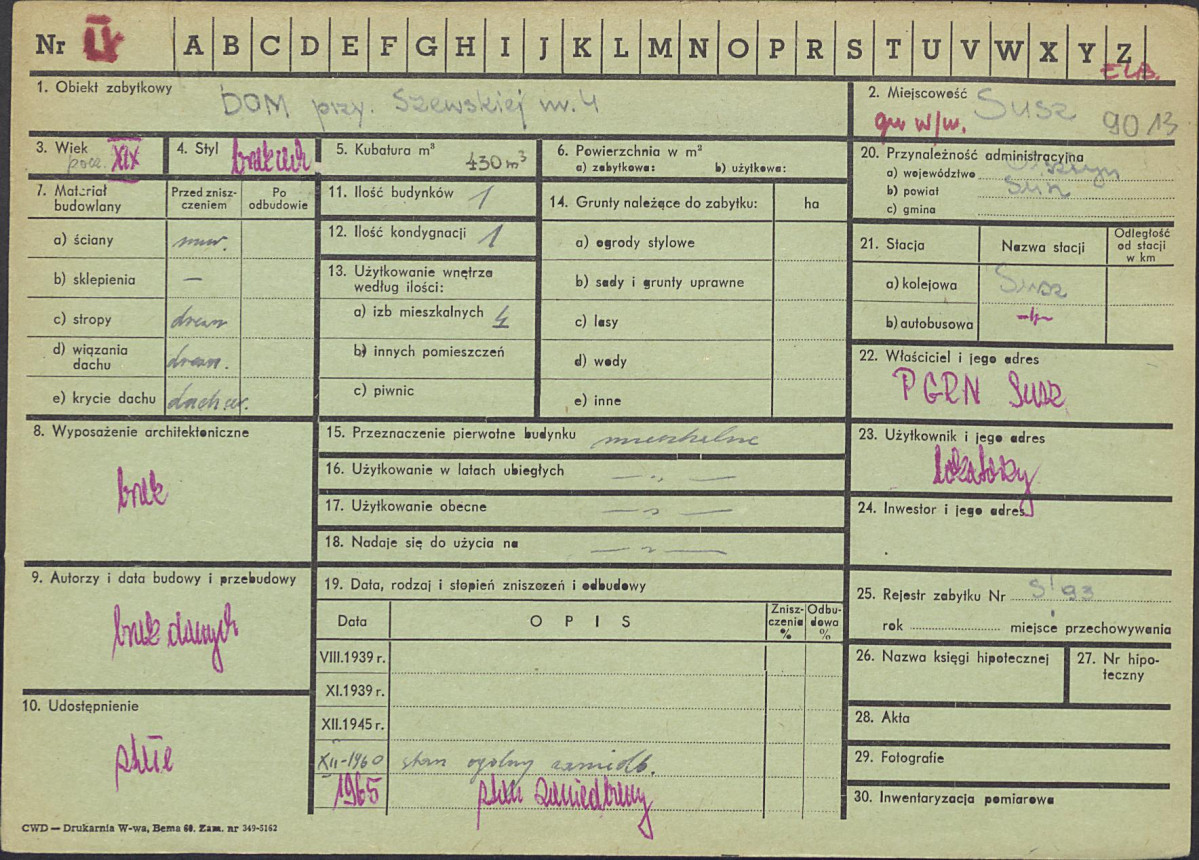 Nr IV A B C D E F G H I J K L M N O P R S T U V W X Y Z
ELB.
1. Obiekt zabytkowy DOM przy. Szewskiej nr. 4
2. Miejscowość Susz
gm w/m. 9013
3. Wiek pocz. XIX
4. Styl
5. Kubatura m³ 430 m³
6. Powierzchnia w m²
a) zabytkowa: b) użytkowa:
7. Materiał budowlany
Przed zniszczeniem
Po odbudowie
a) ściany mur.
b) sklepienia —
c) stropy drewn
d) wiązania dachu drewn.
e) krycie dachu dachów.
8. Wyposażenie architektoniczne
brak
9. Autorzy i data budowy i przebudowy
brak danych
10. Udostępnienie
11. Ilość budynków 1
12. Ilość kondygnacji 1
13. Użytkowanie wnętrza według ilości:
a) izb mieszkalnych 4
b) innych pomieszczeń
c) piwnic
14. Grunty należące do zabytku: ha
a) ogrody stylowe
b) sady i grunty uprawne
c) lasy
d) wody
e) inne
15. Przeznaczenie pierwotne budynku mieszkalne
16. Użytkowanie w latach ubiegłych — " —
17. Użytkowanie obecne — " —
18. Nadaje się do użycia na — " —
19. Data, rodzaj i stopień zniszczeń i odbudowy
Data OPIS Zniszczenia % Odbudowa %
VIII.1939 r.
XI.1939 r.
XII.1945 r.
XII-1960 stan ogólny zaniedb.
1965 stan zaniedbany
20. Przynależność administracyjna
a) województwo Olsztyn
b) powiat Susz
c) gmina
21. Stacja Nazwa stacji Odległość od stacji w km
a) kolejowa Susz
b) autobusowa -"-
22. Właściciel i jego adres
PGRN Susz
23. Użytkownik i jego adres
lokatorzy
24. Inwestor i jego adres
25. Rejestr zabytku Nr S/93
rok miejsce przechowywania
26. Nazwa księgi hipotecznej
27. Nr hipoteczny
28. Akta
29. Fotografie
30. Inwentaryzacja pomiarowa
CWD — Drukarnia W-wa, Bema 60. Zam. nr 349-5162